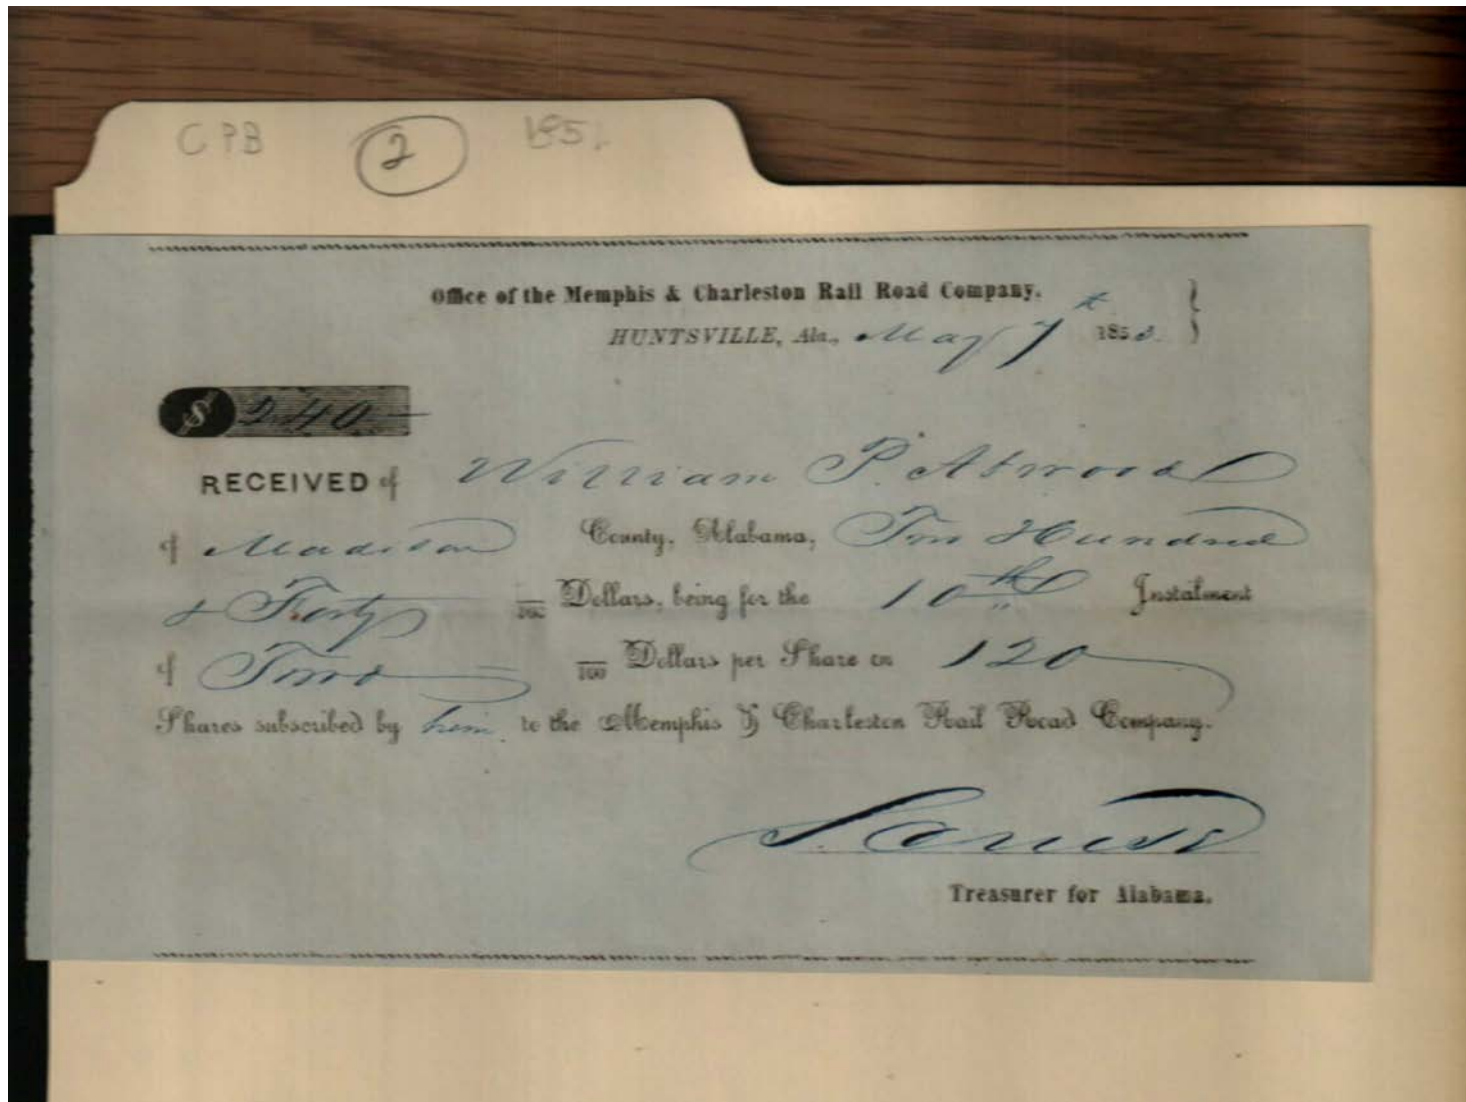 CPB 2 185
Office of the Memphis & Charleston Rail Road Company.
HUNTSVILLE, Ala., May 7th 185
$ 240
RECEIVED of William P. Atwood
of Madison County, Alabama, Two Hundred
& Forty /100 Dollars, being for the 10th Instalment
of Two /100 Dollars per Share on 120
Shares subscribed by him to the Memphis & Charleston Rail Road Company.
S. Cruse
Treasurer for Alabama.